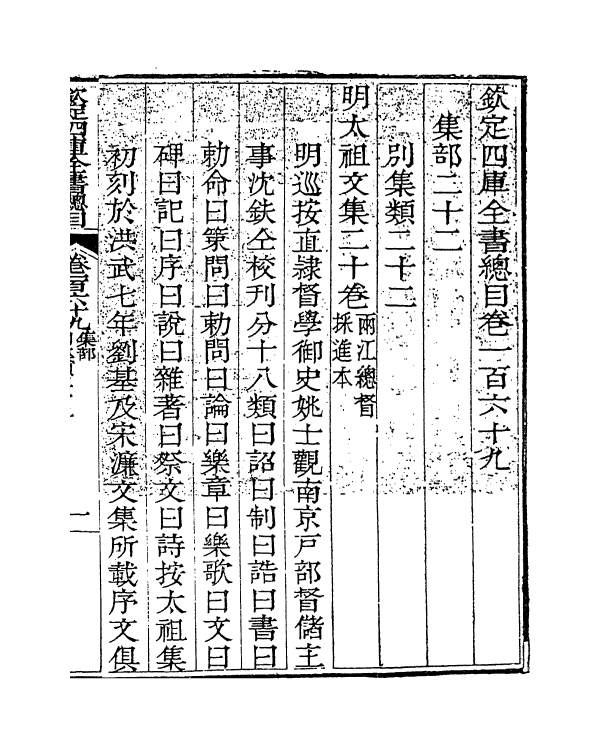 欽定四庫全書總目卷一百六十九
集部二十二
別集類二十二
明太祖文集二十卷兩江總督採進本
明巡按直隸督學御史姚士觀南京戸部督儲主
事沈鈇仝校刊分十八類曰詔曰制曰誥曰書曰
勅命曰策問曰勅問曰論曰樂章曰樂歌曰文曰
碑曰記曰序曰說曰雜著曰祭文曰詩按太祖集
初刻於洪武七年劉基及宋濂文集所載序文俱
欽定四庫全書總目
卷一百六十九
集部
一